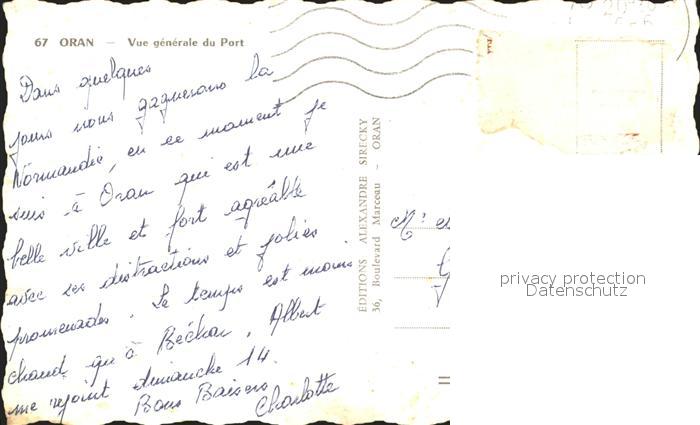 67 ORAN — Vue générale du Port
Dans quelques
jours nous gagnerons la
Normandie, en ce moment je
suis à Oran qui est une
belle ville et fort agréable
avec ses distractions et jolies
promenades. Le temps est moins
chaud qu'à Béchar. Albert
me rejoint dimanche 14.
Bons Baisers
Charlotte
ÉDITIONS ALEXANDRE SIRECKY
36, Boulevard Marceau - ORAN
privacy protection
Datenschutz